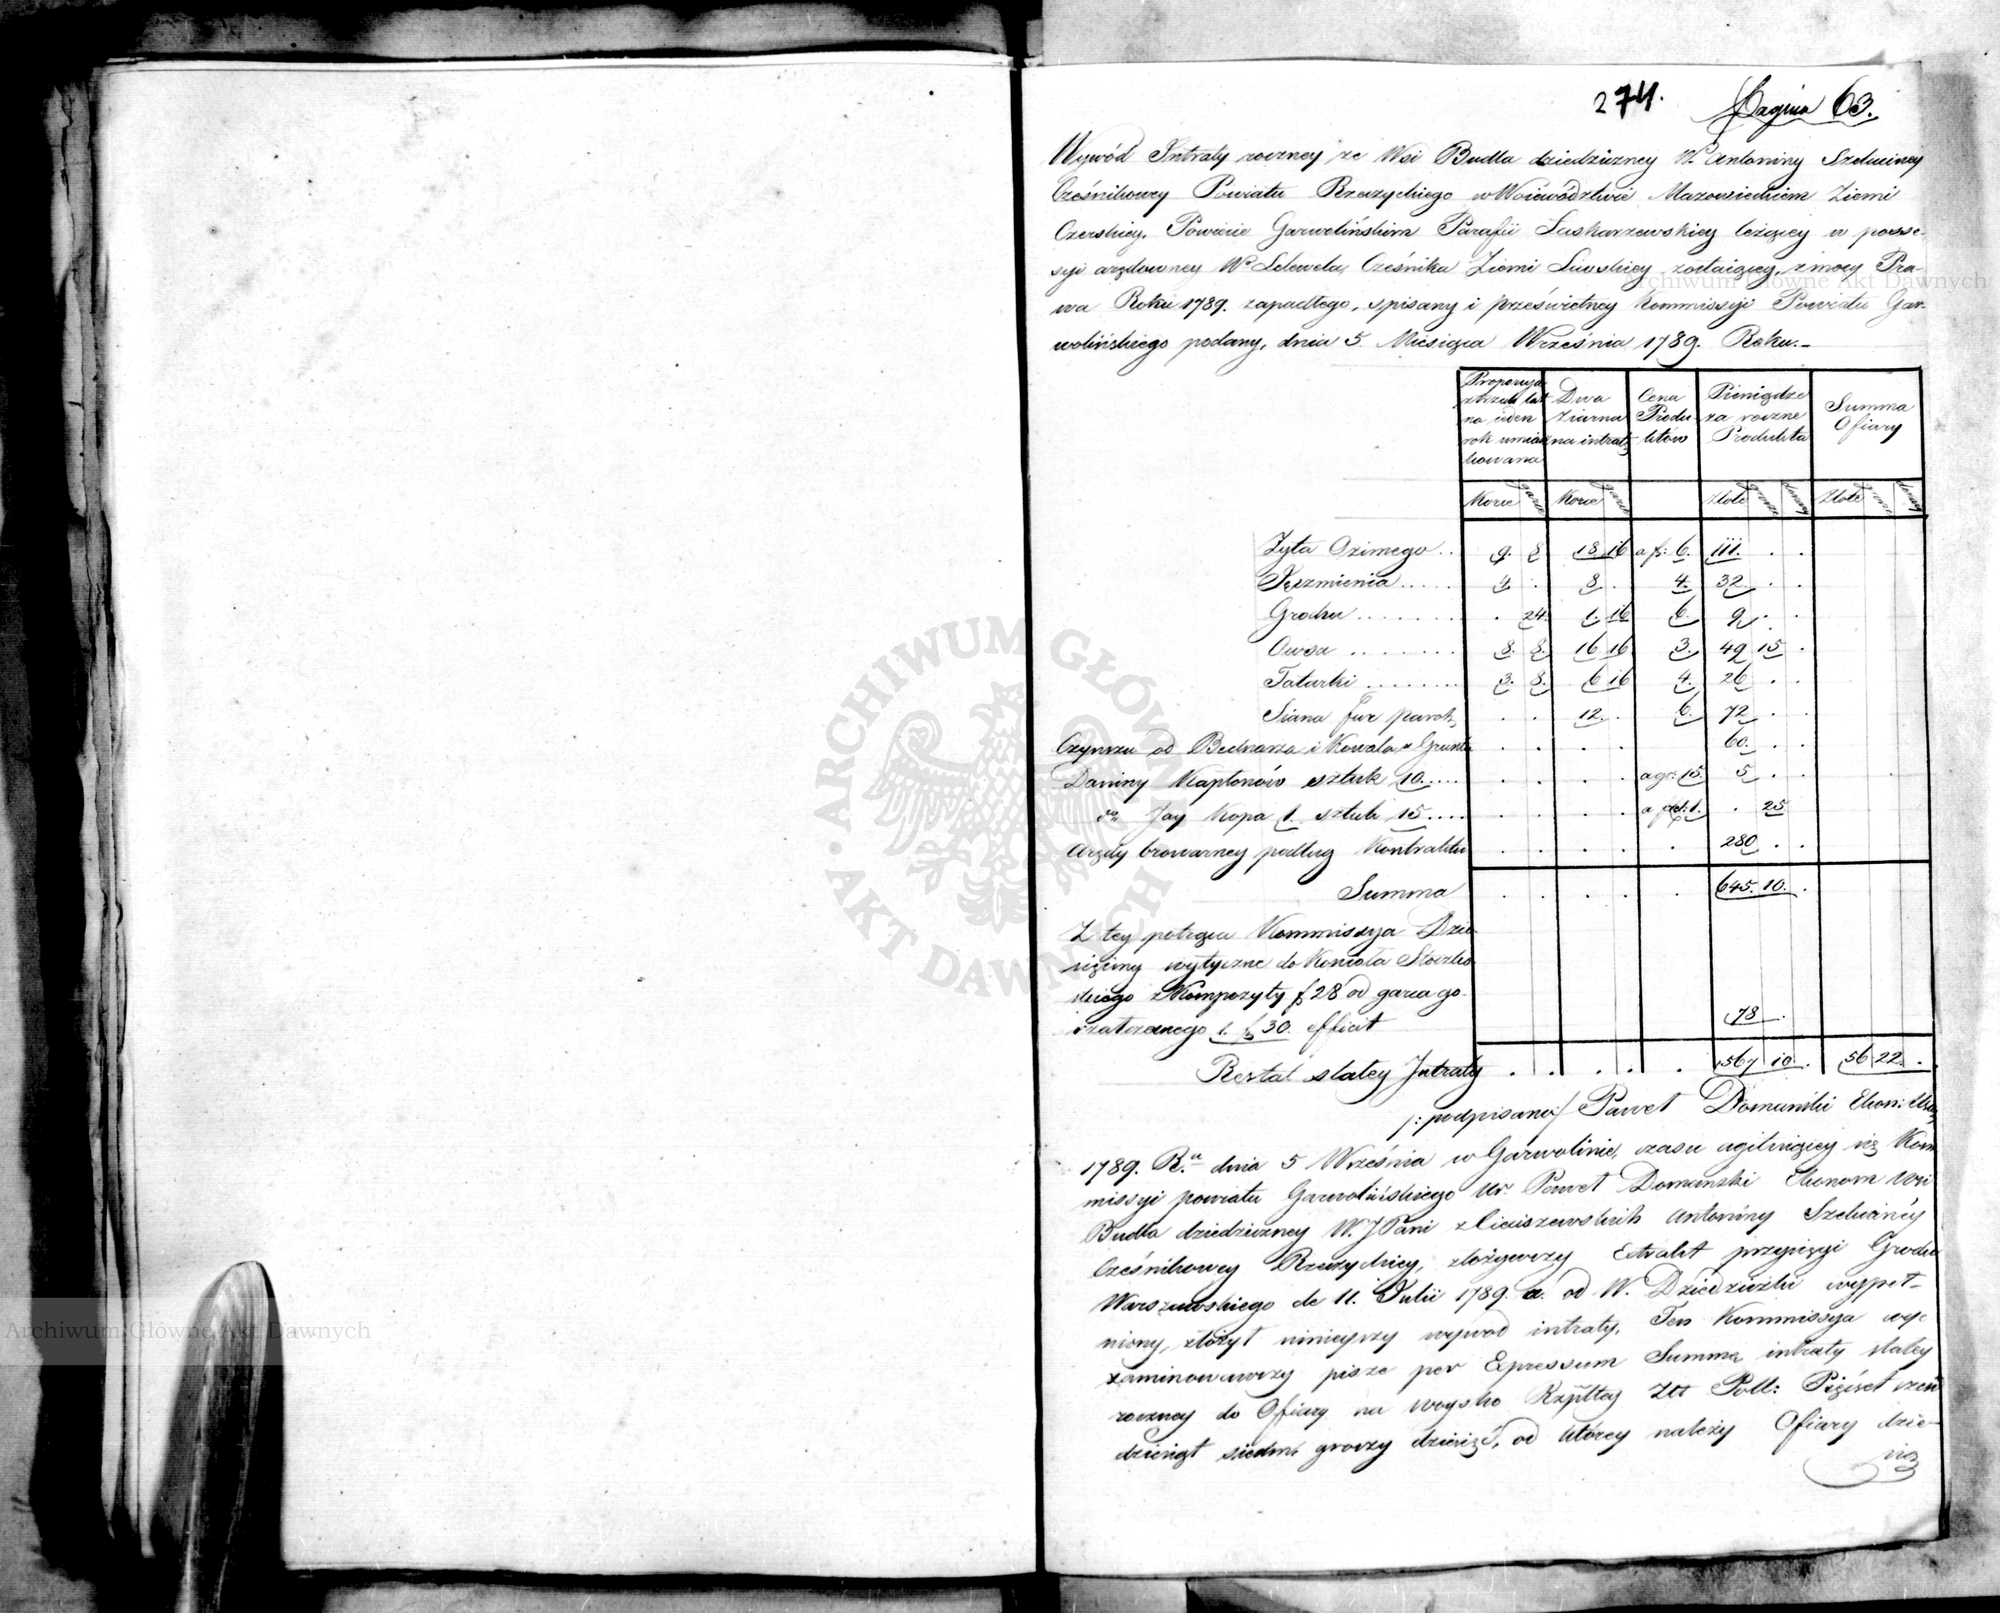 274. Pagina 63.
Wywód Intraty roczney ze Wsi Budla dziedziczney W. Antoniny
Cześnikowey Powiatu w Woiewództwie Mazowieckiem Ziemi
Czerskiey, Powiecie Garwolińskim Parafii Laskarzewskiey leżącey w posse-
syi arędowney Wo Lelewela, Cześnika Ziemi Liwskiey zostaiącey, z mocy Pra-
wa Roku 1789. zapadłego, spisany i prześwietney Kommissyi Powiatu Gar-
wolińskiego podany, dnia 5. Miesiąca Września 1789. Roku.-
Proporcya z trzech lat na ieden rok umiarkowana
Dwa ziarna na intratę
Cena Produktów
Pieniądze za roczne Produkta
Summa Ofiary
Korce garce Korce garce Złote grosze Złote
Żyta Ozimego .. 9. 8 18 16 a f: 6. 111. . .
Jęczmienia ..... 4. . 8. . 4. 32. . .
Grochu ........ . 24. 1. 16 6. 9. . .
Owsa ........ 8. 8. 16 16 3. 49 15 .
Tatarki ........ 3. 8. 6 16 4. 26 . .
Siana fur parok. . . 12. . 6. 72 . .
Czynszu od Bednarza i Kowala z Gruntu . . . . 60. . .
Daniny Kapłonów sztuk 10..... . . . . a gr: 15. 5 . .
do Jay Kopa 1. sztuk 15..... . . . . 1. . 25
Arędy browarney podług Kontraktu . . . . . 280 . .
Summa . . . . . 645. 10. .
Z tey potrąca Kommissya Dzie-
sięciny wytyczne do Kościoła
skiego z Kompozyty f 28 od garca go-
rzałczanego 1. f 30. efficit 78 .
Restat stałey Intraty . . . . . 567 10. . 56 22. .
/: podpisano:/ Paweł Domański Ekon:
1789. R.u dnia 5 Września w Garwolinie, czasu agituiącey się Kom-
missyi powiatu Garwolińskiego Ur. Paweł Domański Ekonom wsi
Budla dziedziczney W. J Pani z Cieciszewskich Antoniny
Cześnikowey złożywszy Extrakt przysięgi Grodu
Warszawskiego de 11. Julii 1789. a. od W. Dziedziczki wypeł-
niony, złożył ninieyszy wywod intraty. Ten Kommissya wy-
xaminowawszy pisze per Expressum Summę intraty stałey
roczney do Ofiary na woysko Rzpltey Złt Poll: Pięćset sześć
dziesiąt siedm groszy dziesięć, od którey należy Ofiary dzie-
się
Archiwum Główne Akt Dawnych
Archiwum Główne Akt Dawnych
ARCHIWUM GŁÓWNE AKT DAWNYCH